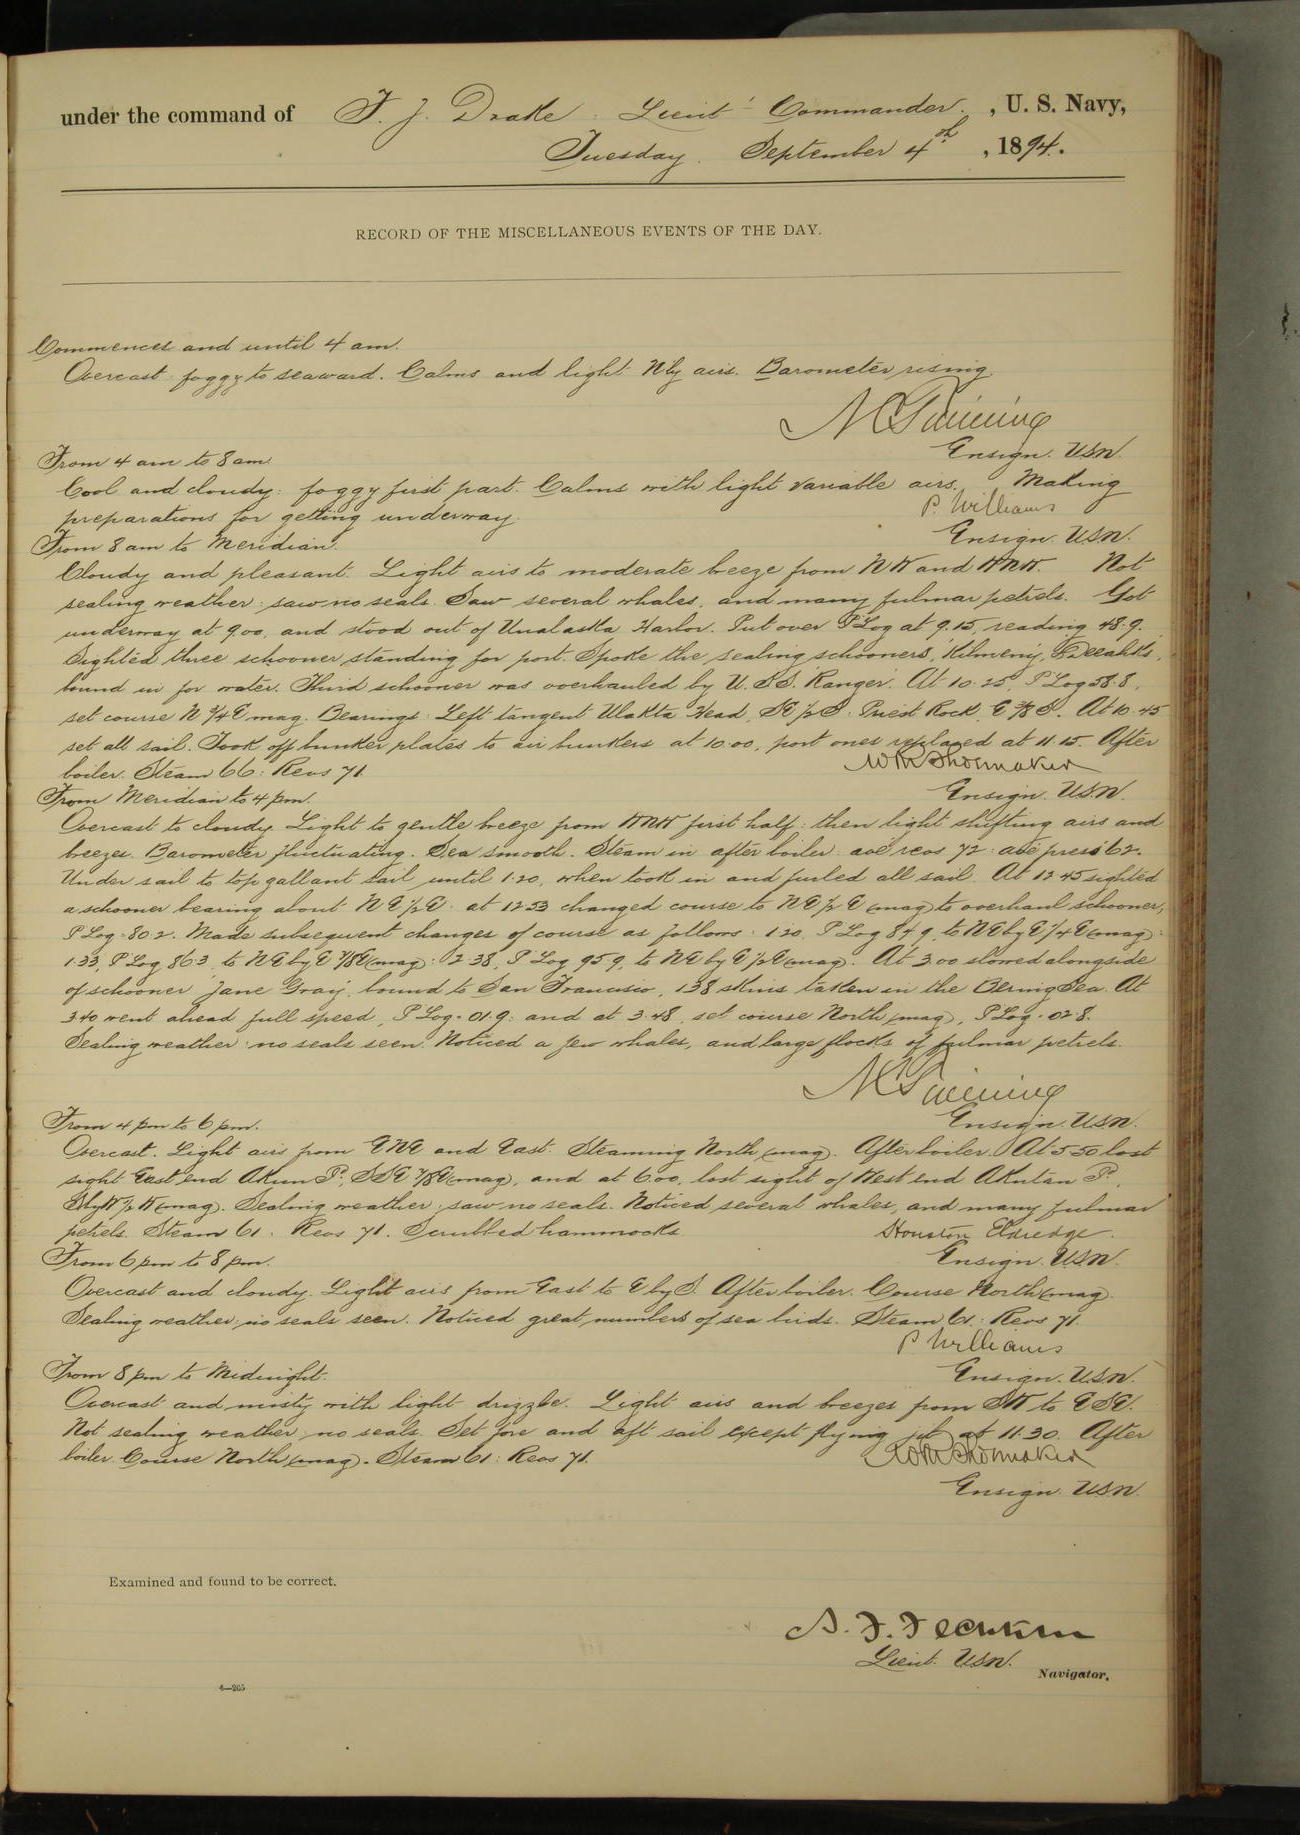 under the command of F. J. Drake. Lieut- Commander. , U. S. Navy,
Tuesday. September 4th , 1894.
RECORD OF THE MISCELLANEOUS EVENTS OF THE DAY.
Commences and until 4 am.
Overcast foggy to seaward. Calms and light N'ly airs. Barometer rising.
Ensign. USN.
From 4 am to 8 am
Cool and cloudy: foggy first part. Calms with light variable airs. Making
preparations for getting underway.
P. Williams
Ensign. USN.
From 8 am to Meridian.
Cloudy and pleasant. Light airs to moderate breeze from NW and WNW. Not
sealing weather: saw no seals. Saw several whales, and many fulmar petrels. Got
underway at 9.00, and stood out of Unalaska Harbor. Put over P Log at 9.15, reading 48.9.
Sighted three schooner standing for port. Spoke the sealing schooners, "Kilmeny,"
bound in for water. Third schooner was overhauled by U.S.S. "Ranger". At 10.25, P Log 58.8,
set course N 3/4 E mag. Bearings: Left tangent Ulakta Head, SE 1/2 S: Priest Rock, E 3/8 S. At 10.45
set all sail. Took off bunker plates to air bunkers at 10.00, port ones replaced at 11.15. After
boiler. Steam 66: Revs 71.
Wm Shoemaker
Ensign. USN.
From Meridian to 4 pm.
Overcast to cloudy. Light to gentle breeze from WNW first half: then light shifting airs and
breezes. Barometer fluctuating. Sea smooth. Steam in after boiler: ave revs 72: ave press 62.
Under sail to top gallant sail until 1.20, when took in and furled all sail. At 12 45 sighted
a schooner bearing about NE 1/2 E: at 12 53 changed course to NE 1/2 E (mag) to overhaul schooner,
P Log. 80 2. Made subsequent changes of course as follows: 1.20, P Log 84 9, to NE by E 1/4 E (mag):
1.33, P Log 86 3, to NE by E 7/8 E (mag): 2 38, P Log 95 9, to NE by E 1/2 E (mag). At 3.00 slowed alongside
of schooner "Jane Gray", bound to San Francisco, 138 skins taken in the Bering Sea. At
3.40 went ahead full speed, P Log. 01.9: and at 3.48, set course North (mag), P Log. 02 8.
Sealing weather: no seals seen. Noticed a few whales, and large flocks of fulmar petrels.
Ensign. USN.
From 4 pm to 6 pm.
Overcast. Light airs from ENE and East. Steaming North (mag). After boiler. At 5 50 lost
sight East end Akun Id, SSE 7/8 E (mag), and at 6.00, lost sight of West end Akutan Id,
S by W 1/2 W (mag). Sealing weather; saw no seals. Noticed several whales, and many fulmar
petrels. Steam 61: Revs 71. Scrubbed hammocks.
Houston Eldredge.
Ensign. USN.
From 6 pm to 8 pm.
Overcast and cloudy. Light airs from East to E by S. After boiler. Course North (mag).
Sealing weather, no seals seen. Noticed great numbers of sea birds. Steam 61: Revs 71.
P Williams
Ensign. USN.
From 8 pm to Midnight.
Overcast and misty with light drizzle. Light airs and breezes from SW to ESE.
Not sealing weather, no seals. Set fore and aft sail except flying jib at 11.30. After
boiler. Course North (mag). Steam 61: Revs 71.
Wm Shoemaker
Ensign. USN.
Examined and found to be correct.
A. F. Fechteler
Lieut. USN.
Navigator.
4—205